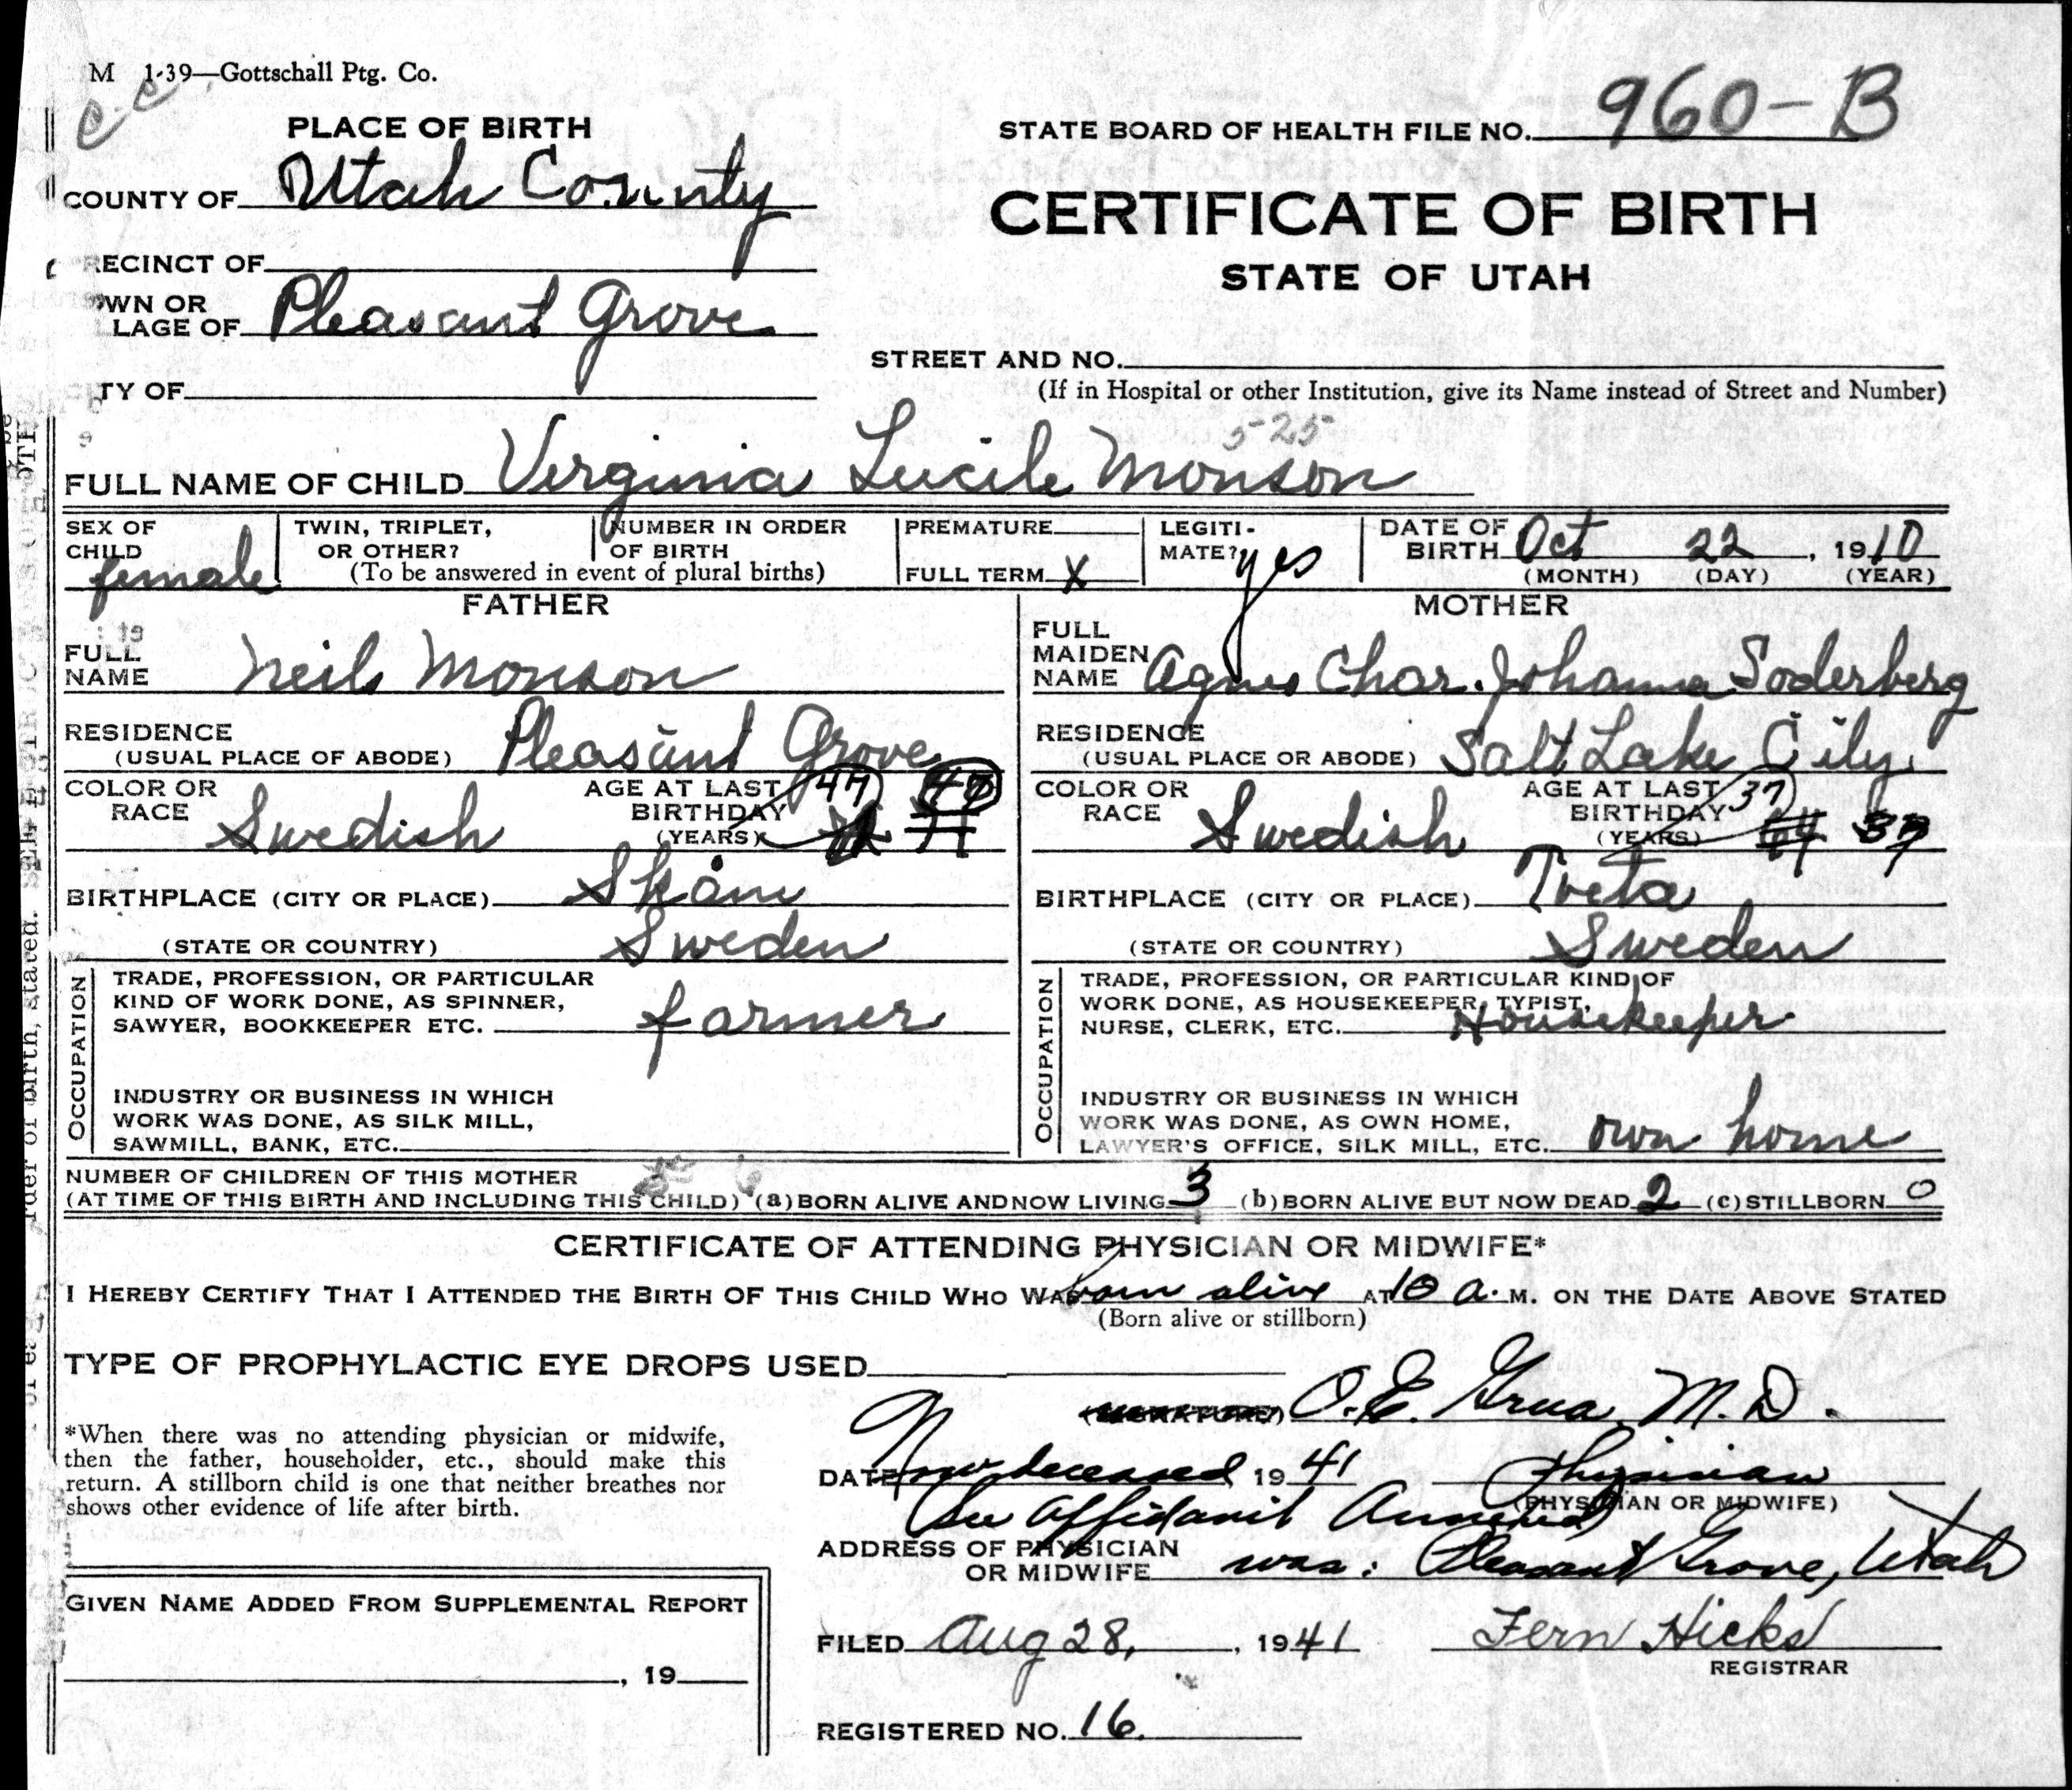 M 1-39—Gottschall Ptg. Co.
960-B
PLACE OF BIRTH
STATE BOARD OF HEALTH FILE NO.
COUNTY OF Utah County
CERTIFICATE OF BIRTH
STATE OF UTAH
RECINCT OF
WN OR
LAGE OF Pleasant Grove
STREET AND NO.
(If in Hospital or other Institution, give its Name instead of Street and Number)
TY OF
5-25-
FULL NAME OF CHILD Virginia Lucile Monson
SEX OF CHILD female
TWIN, TRIPLET, OR OTHER?
NUMBER IN ORDER OF BIRTH
(To be answered in event of plural births)
PREMATURE
FULL TERM X
LEGITI-MATE? yes
DATE OF BIRTH Oct 22, 1910
(MONTH) (DAY) (YEAR)
FATHER
MOTHER
FULL NAME Neils Monson
FULL MAIDEN NAME Agnes Char. Johanna Soderberg
RESIDENCE
(USUAL PLACE OF ABODE) Pleasant Grove
RESIDENCE
(USUAL PLACE OR ABODE) Salt Lake City
COLOR OR RACE Swedish
AGE AT LAST BIRTHDAY (YEARS) 47
COLOR OR RACE Swedish
AGE AT LAST BIRTHDAY (YEARS) 37 64 37
BIRTHPLACE (CITY OR PLACE) Skåne
(STATE OR COUNTRY) Sweden
BIRTHPLACE (CITY OR PLACE) Tveta
(STATE OR COUNTRY) Sweden
OCCUPATION
TRADE, PROFESSION, OR PARTICULAR
KIND OF WORK DONE, AS SPINNER,
SAWYER, BOOKKEEPER ETC. farmer
INDUSTRY OR BUSINESS IN WHICH
WORK WAS DONE, AS SILK MILL,
SAWMILL, BANK, ETC.
OCCUPATION
TRADE, PROFESSION, OR PARTICULAR KIND OF
WORK DONE, AS HOUSEKEEPER, TYPIST,
NURSE, CLERK, ETC. Housekeeper
INDUSTRY OR BUSINESS IN WHICH
WORK WAS DONE, AS OWN HOME,
LAWYER'S OFFICE, SILK MILL, ETC. own home
NUMBER OF CHILDREN OF THIS MOTHER
(AT TIME OF THIS BIRTH AND INCLUDING THIS CHILD) (a) BORN ALIVE AND NOW LIVING 3 (b) BORN ALIVE BUT NOW DEAD 2 (c) STILLBORN 0
CERTIFICATE OF ATTENDING PHYSICIAN OR MIDWIFE*
I HEREBY CERTIFY THAT I ATTENDED THE BIRTH OF THIS CHILD WHO WAS born alive AT 10 a. M. ON THE DATE ABOVE STATED
(Born alive or stillborn)
TYPE OF PROPHYLACTIC EYE DROPS USED
(SIGNATURE) O. E. Grua, M. D.
*When there was no attending physician or midwife,
then the father, householder, etc., should make this
return. A stillborn child is one that neither breathes nor
shows other evidence of life after birth.
DATE Now deceased 1941 Physician
(PHYSICIAN OR MIDWIFE)
See Affidavit Annexed
ADDRESS OF PHYSICIAN
OR MIDWIFE was: Pleasant Grove, Utah
GIVEN NAME ADDED FROM SUPPLEMENTAL REPORT
, 19
FILED Aug 28, , 1941 Fern Hicks
REGISTRAR
REGISTERED NO. 16.